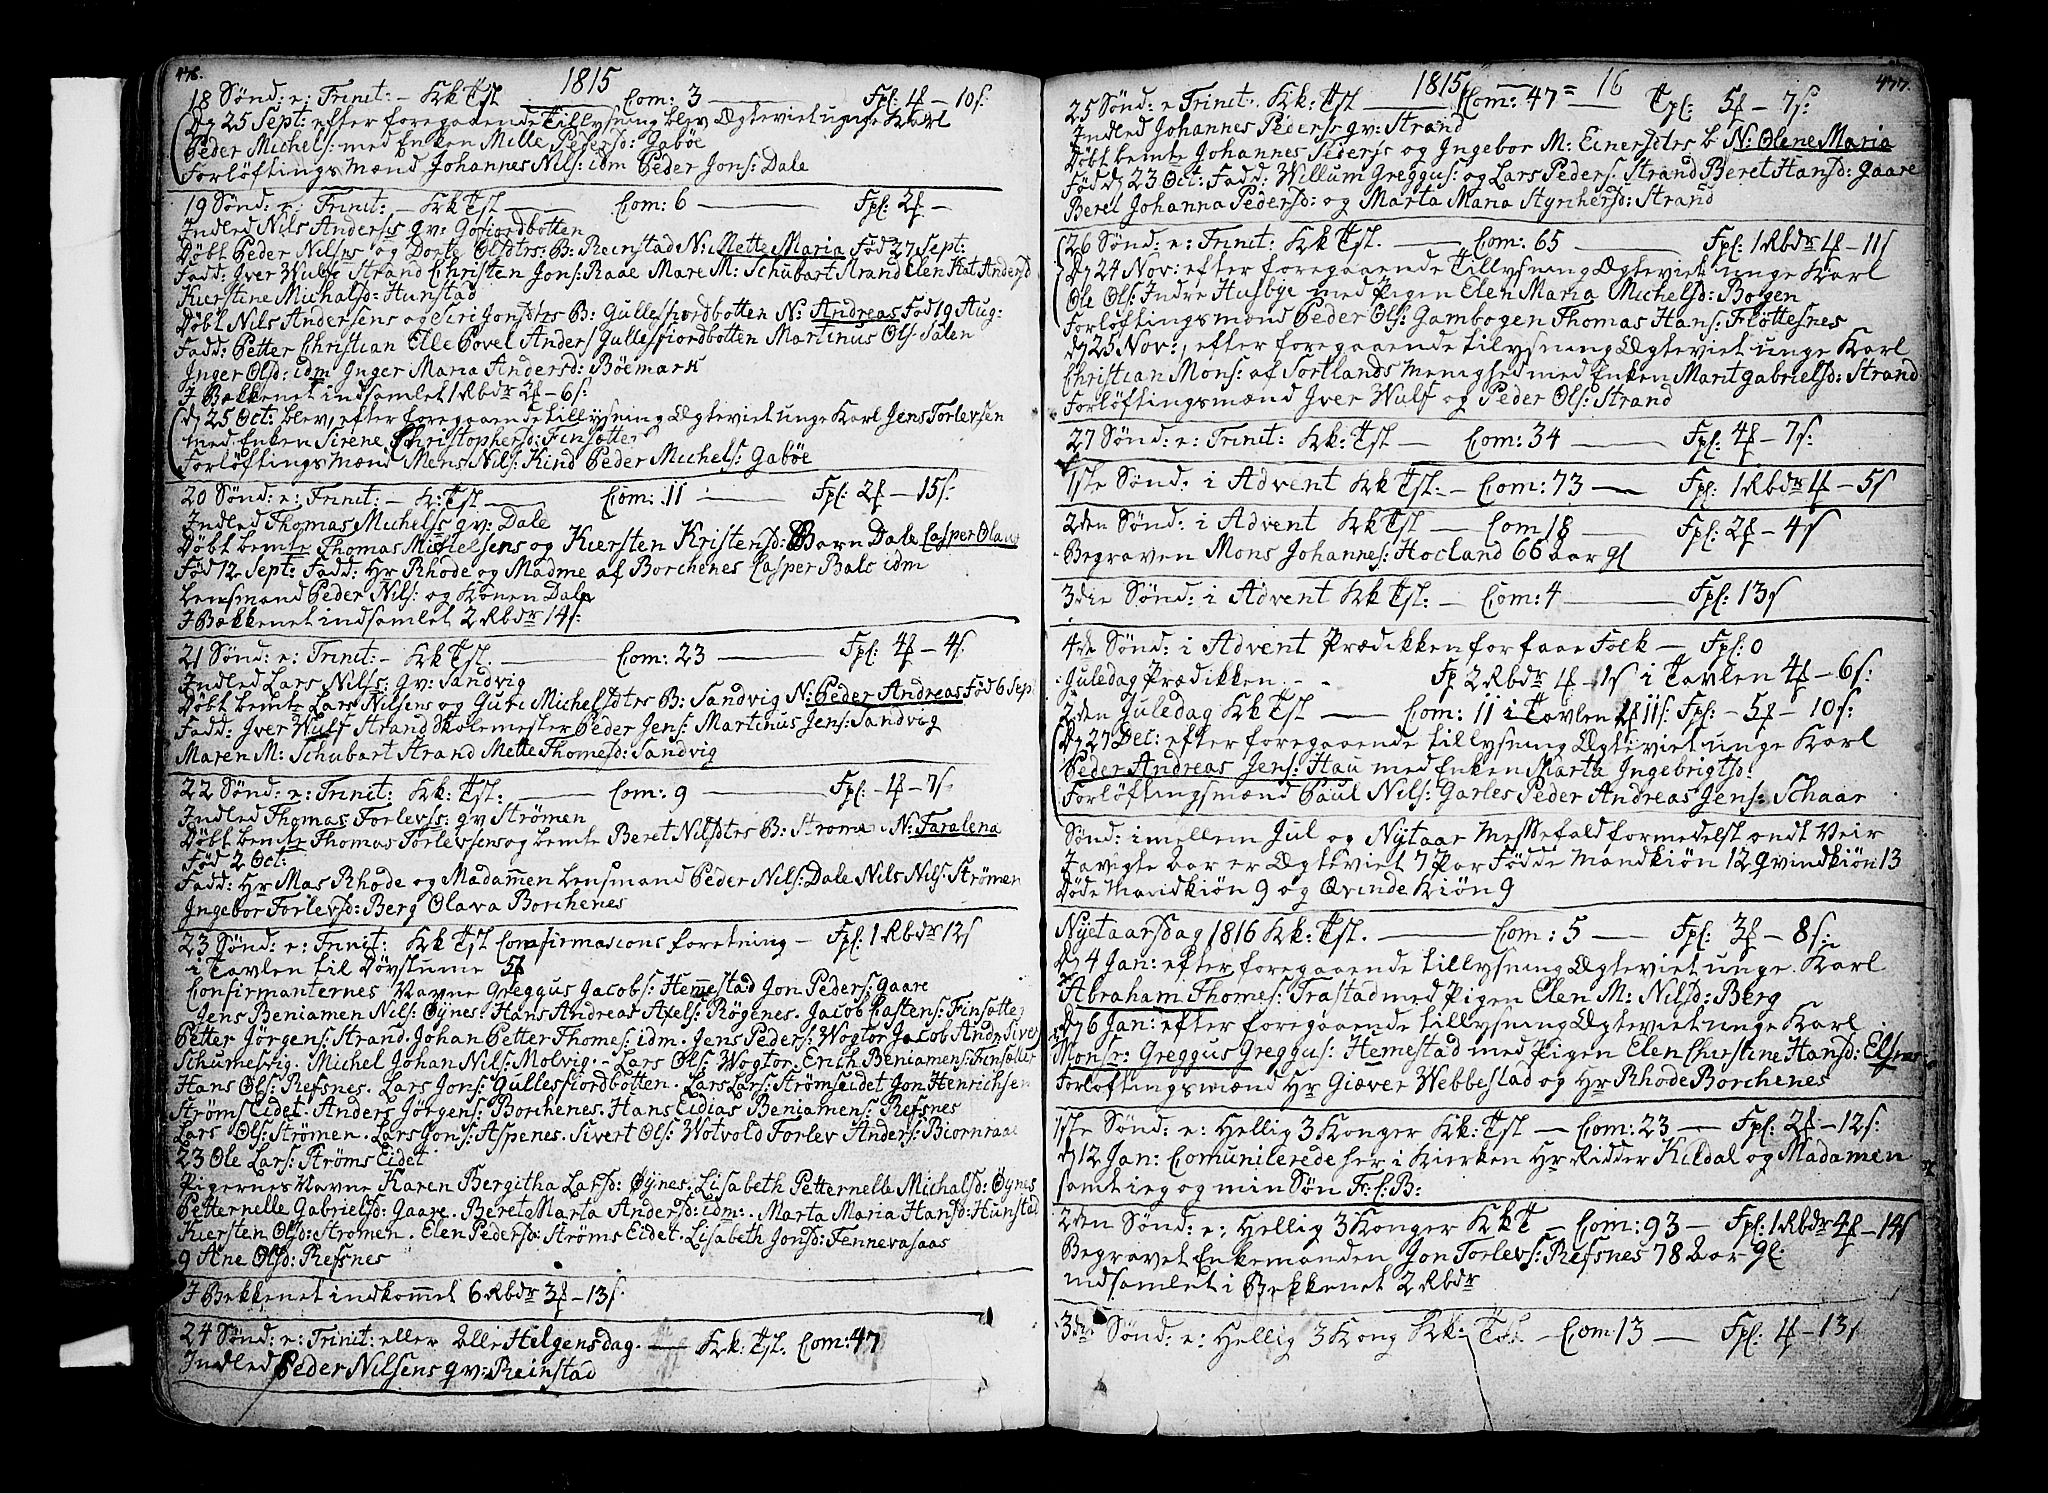 476.
1815
18 Sønd: e: Trinit: – Kk Tst Com: 3 Fpl: 4ƒ – 10s:
D 25 Sept: efter foregaaende Tillysning blev Ægteviet unge Karl
Peder Michels: med Enken Mille Pedersd: Gabøe
Forløftingsmænd Johannes Nils: idm Peder Jons: Dale
19 Sønd: e: Trinit: – Kk Tst Com: 6 Fpl: 2ƒ –
Indled Nils Anders qv: Gofiordbotten
Døbt Peder Nils og Dorte Olsdtrs: B: Reinstad N: Mette Maria Fød 27 Sept:
Fadd: Iver Wulf Strand Christen Jons: Raae Mare M: Schubart Strand Elen Kat Andersd
Kierstine Michalsd: Hunstad
Døbt Nils Andersens og Siri Jonsdtrs B: Gullesfiordbotten N: Andreas Fød 19 Aug:
Fadd: Petter Christian Elle Povel Anders Gullesfiordbotten Martinus Ols Salen
Inger Olsd: idm Inger Maria Andersd: Bøemark
I Bækkenet indsamlet 1 Rbdr 2ƒ – 6s:
d 25 Oct: blev, efter foregaaende tillysning Ægteviet unge Karl Jens Torlevsen
med Enken Sirene Christophersd: Finsætter
Forløftingsmænd Mens Nils: Kind Peder Michels: Gabøe
20 Sønd: e: Trinit: – K: Tst Com: 11 Fpl: 2ƒ – 15s:
Indled Thomas Michels qv: Dale
Døbt bemte Thomas Michelsens og Kiersten Kristensd: Barn Dale Casper Olaus
Fød 12 Sept: Fadd: Hr Rhode og Madme af Borchenes Casper Bals idm
Lensmand Peder Nils: og Konen Dale
I Bækkenet indsamlet 2 Rbdr 14s:
21 Sønd: e: Trinit: – Kk Tst. Com: 23 Fpl: 4ƒ – 4s.
Indled Lars Nils: qv: Sandvig
Døbt bemte Lars Nilsens og Guri Michelsdtrs B: Sandvig N: Peder Andreas Fød 6 Sept
Fadd: Iver Wulf Strand Skolemester Peder Jens: Martinus Jens: Sandvig
Maren M: Schubart Strand Mette Thomesd: Sandvig
22 Sønd: e: Trinit: Kk: Tst: Com: 9 Fpl: – 4 – 7s.
Indled Thomas Torlevs: qv Strömen
Døbt bemte Thomas Torlevsens og bemte Beret Nilsdtrs B: Strømen N: Taralena
Fød 2 Oct:
Fadd: Hr Mas Rhode og Madamen Lensmand Peder Nils: Dale Nils Nils: Strömen
Ingebor Torlevsd: Berg Olava Borchenes
23 Sønd: e: Trinit: Kk Tst Confirmasions foretning – Fpl: 1 Rbdr 12s
i Tavlen til Døvstume 5ƒ
Confirmanternes Navne Greggus Jacobs: Hemestad Jon Peders: Gaare
Jens Beniamen Nils: Øynes. Hans Andreas Axels: Røgenes. Jacob Castens: Finsætter
Petter Jørgens: Strand. Johan Petter Thomes: idm. Jens Peders: Wogtor Jacob Andr Sivers
Schumesvig. Michel Johan Nils: Molvig. Lars Ols: Wogtor. Erich Beniamens: Finsætter
Hans Ols: Refsnes. Lars Jons: Gullesfiordbotten. Lars Lars: Strömseidet Jon Henrichsen
Ströms Eidet. Anders Jörgens: Borchenes. Hans Eidias Beniamens: Refsnes
Lars Ols: Strömen. Lars Jons: Aspenes. Sivert Ols: Wotvold Torlev Anders: Biornraae
23 Ole Lars: Ströms Eidet
Pigernes Navne Karen Bergitha Larsd: Øynes. Lisabeth Petternelle Michalsd: Øynes
Petternelle Gabrielsd: Gaare. Beret Marta Andersd: idm. Marta Maria Hansd: Hunstad
Kiersten Olsd: Strömen. Elen Pedersd: Ströms Eidet. Lisabeth Jonsd: Tennevasaas
9 Ane Olsd: Refsnes
I Bekkenet indkommet 6 Rbdr 3ƒ – 13s.
24 Sønd: e: Trinit: eller Alle Helgensdag. Kk: Tst. Com: 47
Indled Peder Nilsens qv: Reinstad
477.
1815 – = 16
25 Sønd: e Trinit. Kk: Tst Com: 47 Fpl: 5ƒ – 7s:
Indled Johannes Peders qv: Strand
Døbt bemte Johannes Peders og Ingebor M: Einersdtrs b N: Olene Maria
Fød d 23 Oct: Fadd: Willum Greggus: og Lars Peders: Strand Beret Hansd: Gaare
Beret Johanna Pedersd: og Marta Maria Stynhersd: Strand
26 Sønd: e: Trinit: Kk Tst. Com: 65 Fpl: 1 Rbdr 4ƒ – 11s
D 24 Nov: efter foregaaende Tillysning Ægteviet unge Karl
Ole Ols: Indre Husbye med Pigen Elen Maria Michelsd: Bogen
Forløftingsmænd Peder Ols: Gambogen Thomas Hans: Fløttesnes
d 25 Nov:, efter foregaaende tilysning Ægteviet unge Karl
Christian Mons: af Sortlands Menighed med Enken Marit Gabrielsd: Strand
Forløftingsmænd Iver Wulf og Peder Ols: Strand
27 Sønd: e: Trinit: Kk: Tst – Com: 34 Fpl: 4ƒ – 7s:
1ste Sønd: i Advent Kk Tst: – Com: 73 – Fpl: 1 Rbdr 4 – 5s
2den Sønd: i Advent Kk Tst – Com 18 – Fpl: 2ƒ – 4s
Begraven Mons Johannes: Hocland 66 aar gl
3die Sønd: i Advent Kk Tst: – Com: 4 Fpl: 13s
4de Sønd: i Advent Prædikken for faae Folk – Fpl: 0
Juledag Prædikken – – Fp 2 Rbdr 4 – 1s i Tavlen 4ƒ – 6s:
2den Juledag Kk Tst Com: 11 i Tavlen 1ƒ 11s: Fpl: – 5ƒ – 10s:
D 27 Dec: efter foregaaende tillysning Ægteviet unge Karl
Peder Andreas Jens: Hau med Enken Marta Ingebrigtsd:
Forløftingsmænd Paul Nils: Garles Peder Andreas Jens: Schaar
Sønd: imellem Jul og Nytaar Messefald formedelst ondt Veir
I avigte aar er Ægteviet 7 Par Födde Mandkiön 12 Qvindkiön 13
Døde Mandkiön 9 og Qvinde Kiön 9
Nyetaarsdag 1816 Kk: Tst. Com: 5 Fpl: 3ƒ – 8s:
d 4 Jan: efter foregaaende tillysning Ægteviet unge Karl
Abraham Thomes: Trastad med Pigen Elen M: Nilsd: Berg
d 6 Jan: efter foregaaende tillysning Ægteviet unge Karl
Monsr: Greggus Greggus: Hemestad med Pigen Elen Christine Hansd: Elsnes
Forløftingsmænd Hr Giæver Webbestad og Hr Rhode Borchenes
1ste Sønd: e: Hellig 3 Konger Kk: Tst – Com: 23 – Fpl: 2ƒ – 12s:
d 12 Jan: Comunicerede her i Kierken Hr Ridder Kildal og Madamen
samt ieg og min Søn Fr: C: B:
2den Sønd: e: Hellig 3 Konger Kk T – Com: 93 – Fpl: 1 Rbdr 4ƒ – 14s
Begravet Enkemanden Jon Torlevs: Refsnes 78 Aar gl:
indsamlet i Bekkenet 2 Rbdr
3die Sønd: e: Hellig 3 Kong Kk: Tst – Com 13 Fpl: 4 – 13s